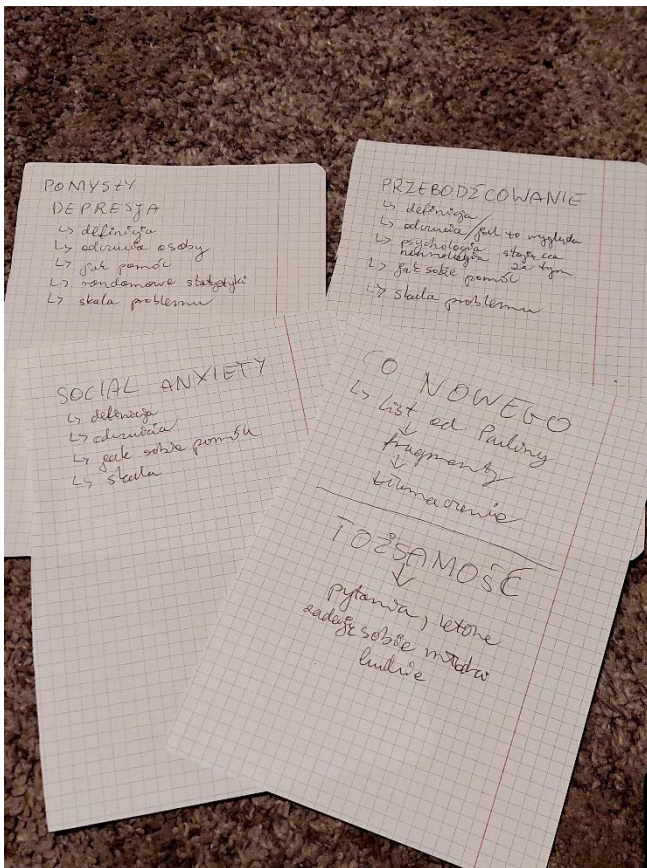 POMYSŁY
DEPRESJA
↳ definicja
↳ odczucia osoby
↳ jak pomóc
↳ randomowe statystyki
↳ skala problemu
PRZEBODŹCOWANIE
↳ definicja
↳ odczucia/jak to wygląda
↳ psychologia stojąca
neurologia za tym
↳ jak sobie pomóc
↳ skala problemu
SOCIAL ANXIETY
↳ definicja
↳ odczucia
↳ jak sobie pomóc
↳ skala
CO NOWEGO
↳ List od Pauliny
↓
fragmenty
↓
tłumaczenie
TOŻSAMOŚĆ
↓
pytania, które
zadają sobie młodzi
ludzie